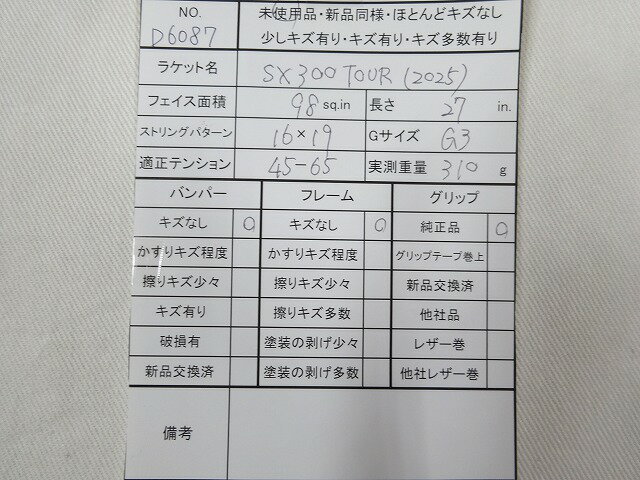 NO. 未使用品・新品同様・ほとんどキズなし
D6087 少しキズ有り・キズ有り・キズ多数有り
ラケット名 SX300TOUR (2025)
フェイス面積 98 sq.in 長さ 27 in.
ストリングパターン 16×19 Gサイズ G3
適正テンション 45-65 実測重量 310 g
バンパー フレーム グリップ
キズなし O キズなし O 純正品 O
かすりキズ程度 かすりキズ程度 グリップテープ巻上
擦りキズ少々 擦りキズ少々 新品交換済
キズ有り 擦りキズ多数 他社品
破損有 塗装の剥げ少々 レザー巻
新品交換済 塗装の剥げ多数 他社レザー巻
備考